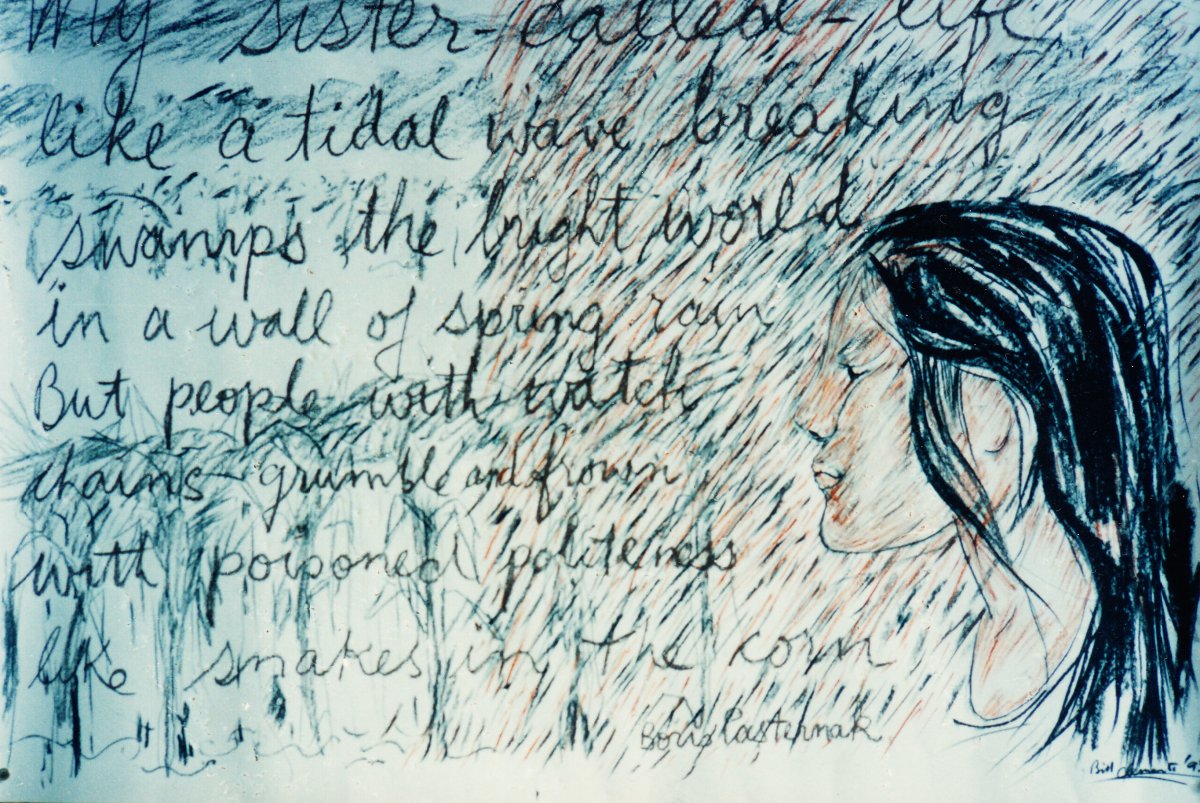 My sister-called-life
like a tidal wave breaking
swamps the bright world
in a wall of spring rain
But people with watch
chains grumble and frown
with poisoned politeness
like snakes in the corn
Boris Pasternak
Bill